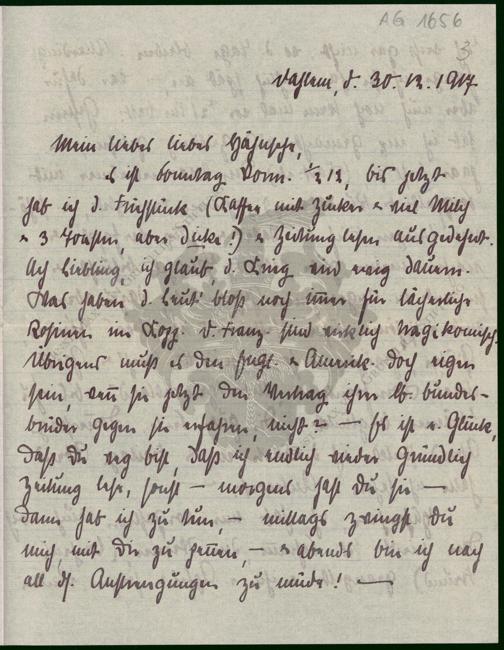 AG 1656
3
Dahlem, d. 30.12.1917
Mein liebes liebes Häschen,
es ist Sonntag Vorm. ½ 12, bis jetzt
hab ich d. Frühstück (Kaffee mit Zucker u viel Milch
u 3 Toasten, aber dicke!) u Zeitung lesen ausgedehnt.
Ach Liebling, ich glaub, d. Krieg wird ewig dauern.
Was haben d. Leut' bloß noch immer für lächerliche
Rosinen im Kopf. d. Franz. sind wirklich tragikomisch.
Übrigens muß es den Engl. u Amerik. doch eigen
sein, wenn sie jetzt den Vertrag ihrer lb. Bundes-
brüder gegen sie erfahren, nicht? — Es ist e. Glück,
daß du weg bist, daß ich endlich wieder gründlich
Zeitung lese, sonst — morgens hast du sie —
dann hab ich zu tun, — mittags zwingst du
mich, mit dir zu — u abends bin ich nach
all ds. Anstrengungen zu müde! —